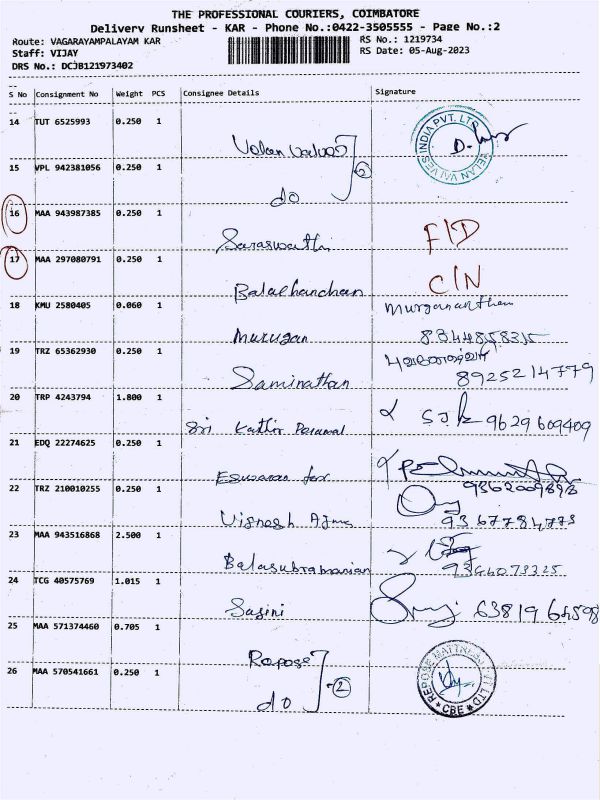 THE PROFESSIONAL COURIERS, COIMBATORE
Delivery Runsheet - KAR - Phone No.:0422-3505555 - Page No.:2
Route: VAGARAYAMPALAYAM KAR
RS No.: 1219734
Staff: VIJAY
RS Date: 05-Aug-2023
DRS No.: DCJB121973402
S No Consignment No Weight PCS Consignee Details Signature
14 TUT 6525993 0.250 1
Velan valves
VELAN VALVES INDIA PVT. LTD
15 VPL 942381056 0.250 1
2
do
16 MAA 943987385 0.250 1
Saraswathi F/D
17 MAA 297080791 0.250 1
C/N
18 KMU 2580405 0.060 1
Murugan 8344858315
19 TRZ 65362930 0.250 1
Saminathan 8925214779
20 TRP 4243794 1.800 1
Sri Kathir Perumal 9629609409
21 EDQ 22274625 0.250 1
Eswaran
22 TRZ 210010255 0.250 1
Vignesh
23 MAA 943516868 2.500 1
Balasubramanian
24 TCG 40575769 1.015 1
Sasini
25 MAA 571374460 0.705 1
Repose
26 MAA 570541661 0.250 1
2
do
REPOSE MATTRESS PVT LTD
CBE